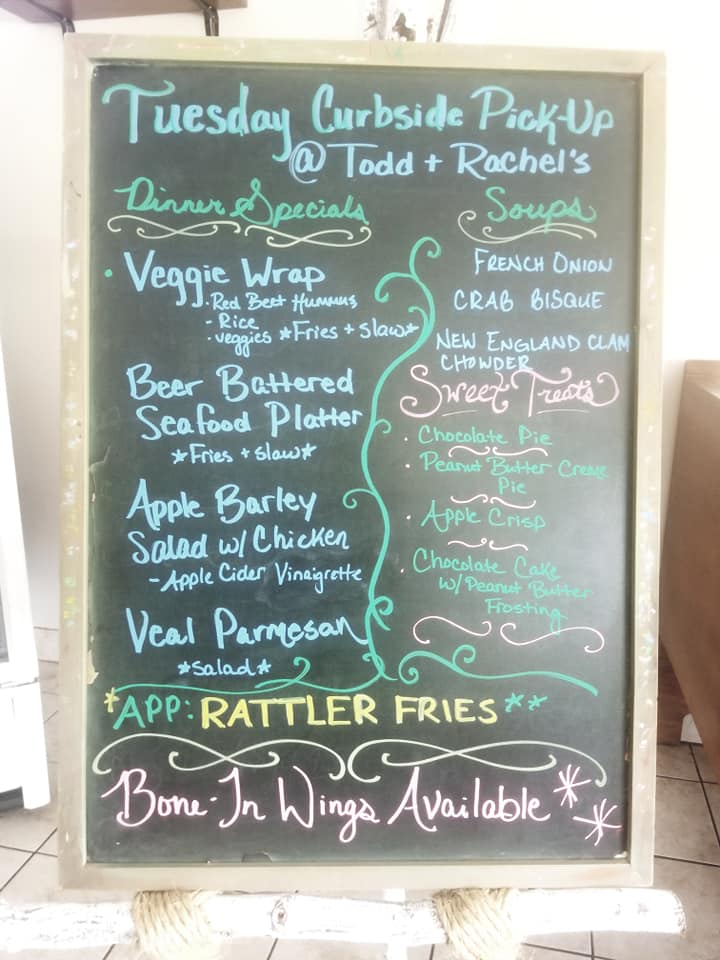 Tuesday Curbside Pick-Up
@ Todd + Rachel's
Dinner Specials
• Veggie Wrap
• Red Beet Hummus
- Rice
• veggies *Fries + slaw*
Beer Battered
Seafood Platter
*Fries + slaw*
Apple Barley
Salad w/ Chicken
- Apple Cider Vinaigrette
Veal Parmesan
*salad*
Soups
French Onion
CRAB BISQUE
NEW ENGLAND CLAM
CHOWDER
Sweet Treats
• Chocolate Pie
• Peanut Butter Creme
Pie
• Apple Crisp
• Chocolate Cake
w/ Peanut Butter
Frosting
*APP: RATTLER FRIES**
Bone-In Wings Available **